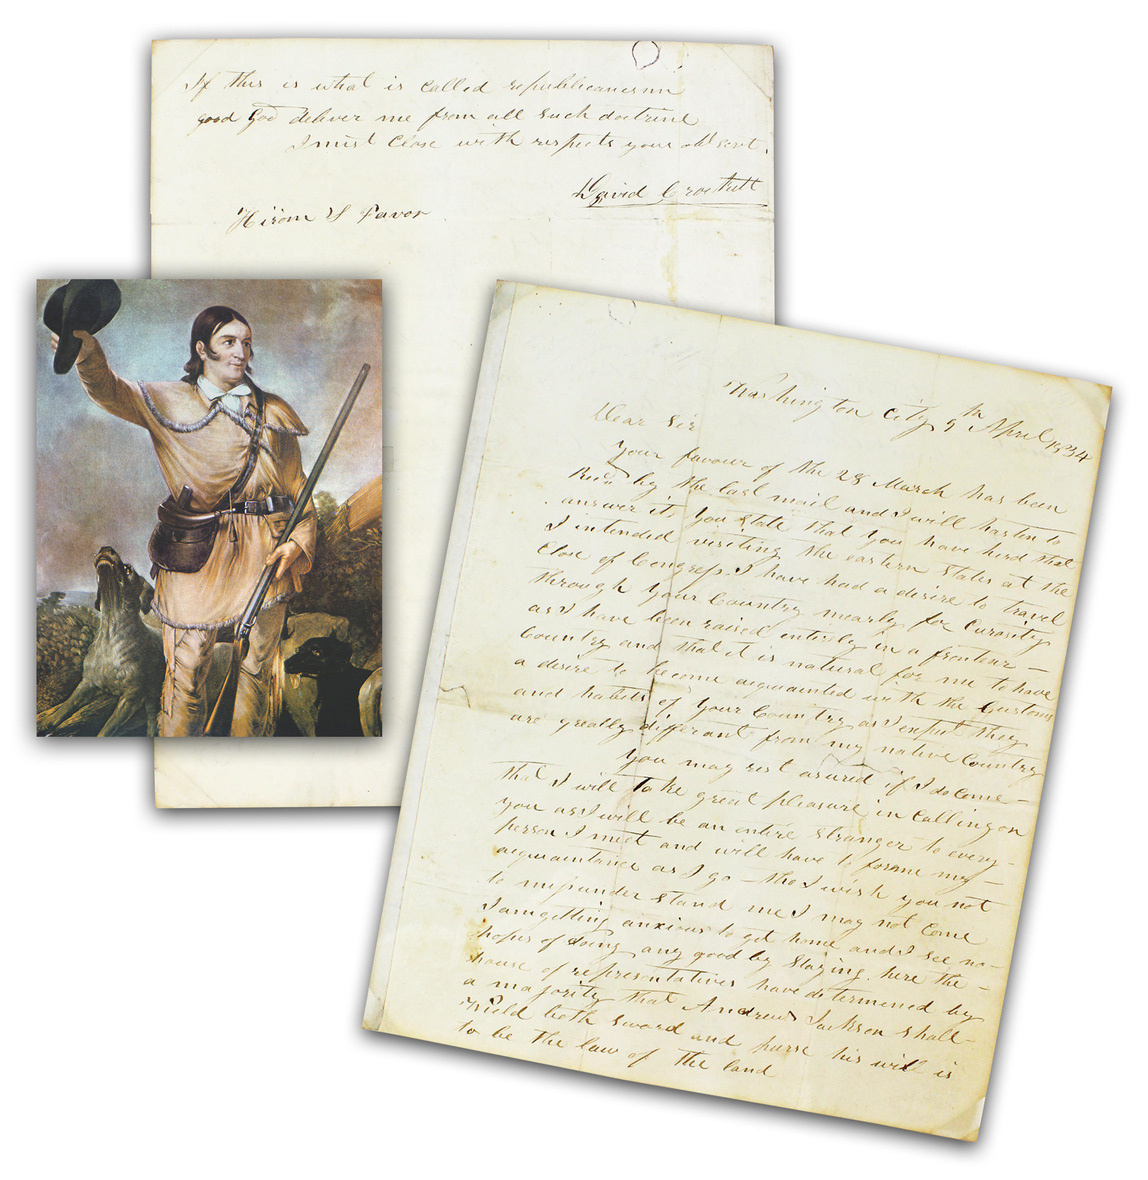 Washington City 9th April 1834
Dear Sir
Your favour of the 28 March has been
Recd by the last mail and I will hasten to
answer it, you state that you have herd that
I intended visiting the eastern States at the
Close of Congress. I have had a desire to travel
through your Country nearly for Curosity
as I have been raised entirely in a fronteer –
Country and that it is natural for me to have
a desire to become acquainted with the Customs
and habits of your Country, as I expect they
are greatly different from my native Country
You may rest asured if I do Come –
that I will take great pleasure in Calling on
you as I will be an entire stranger to every –
person I meet and will have to forme my –
acquaintance as I go – tho I wish you not
to misunderstand me I may not Come
I am getting anxious to get home and I see no –
hopes of doing any good by staying here the –
house of representatives have determened by
a majority that Andrew Jackson shall –
Wield both sword and purse his will is
to be the law of the land
If this is what is called republicanism
good God deliver me from all such doctrine
I must Close with respects your obt servt.
David Crockett
Hirom S Favor